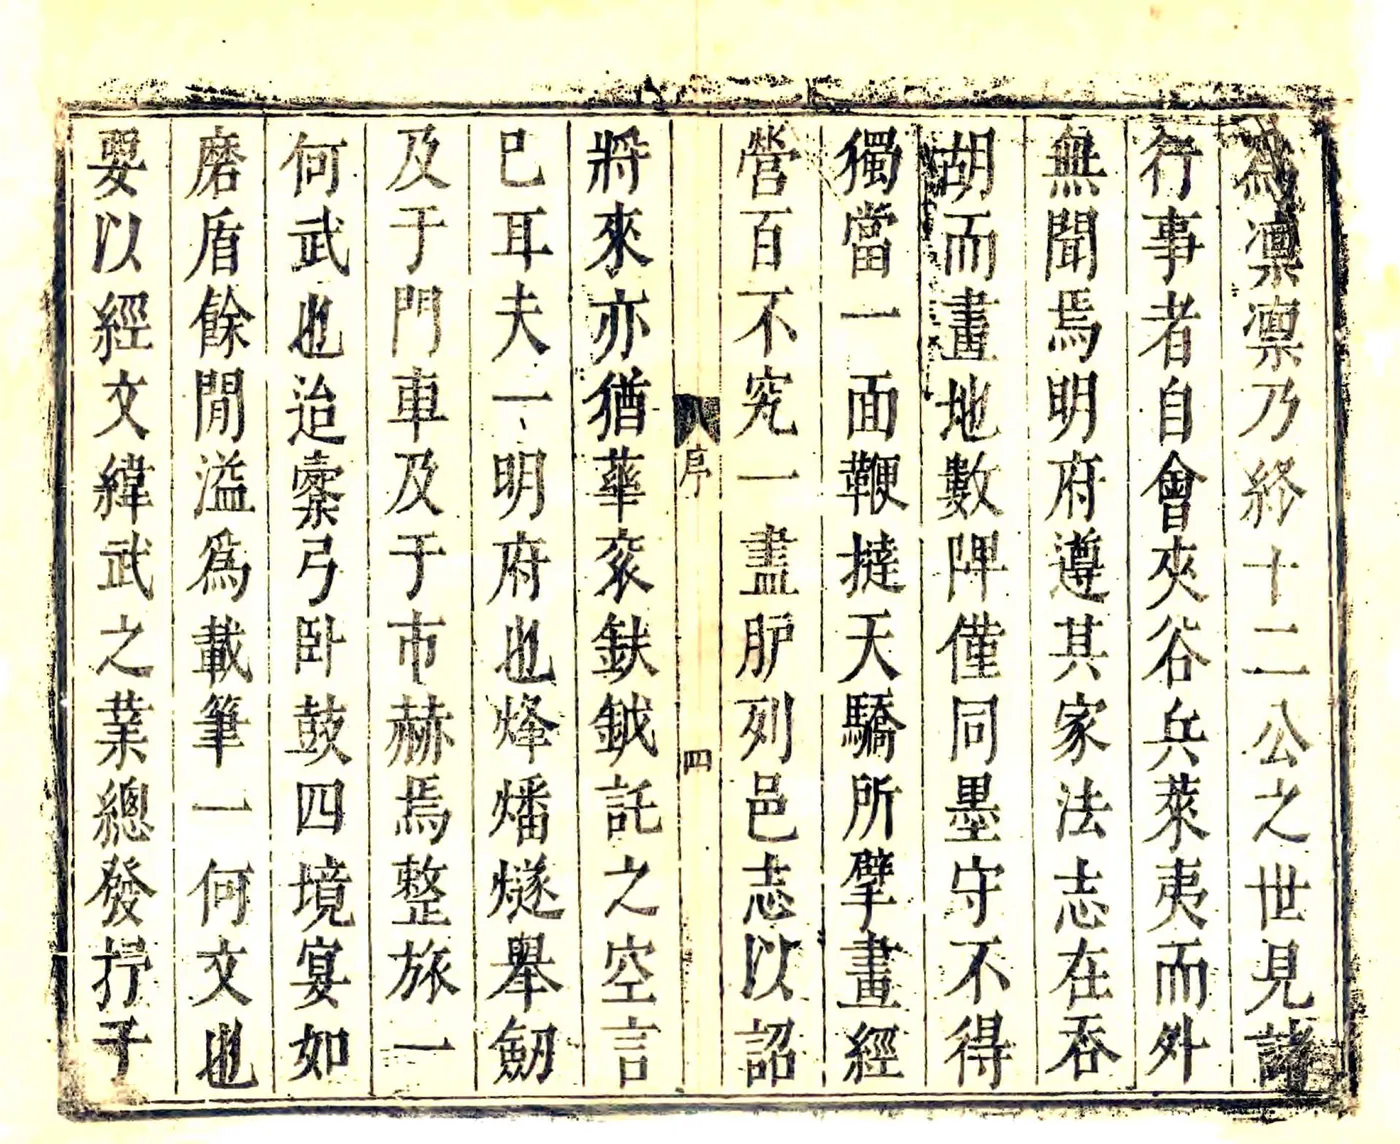 為凛凛乃終十二公之世見諸
行事者自會夾谷兵萊夷而外
無聞焉明府遵其家法志在吞
胡而畫地數陴僅同墨守不得
獨當一面鞭撻天驕所擘畫經
營百不究一盡臚列邑志以詔
序 四
將來亦猶華衮鈇鉞託之空言
已耳夫一明府也烽燔燧舉劒
及于門車及于市赫焉整旅一
何武也迨櫜弓卧鼓四境宴如
磨盾餘閒溢爲載筆一何文也
要以經文緯武之業總發抒于